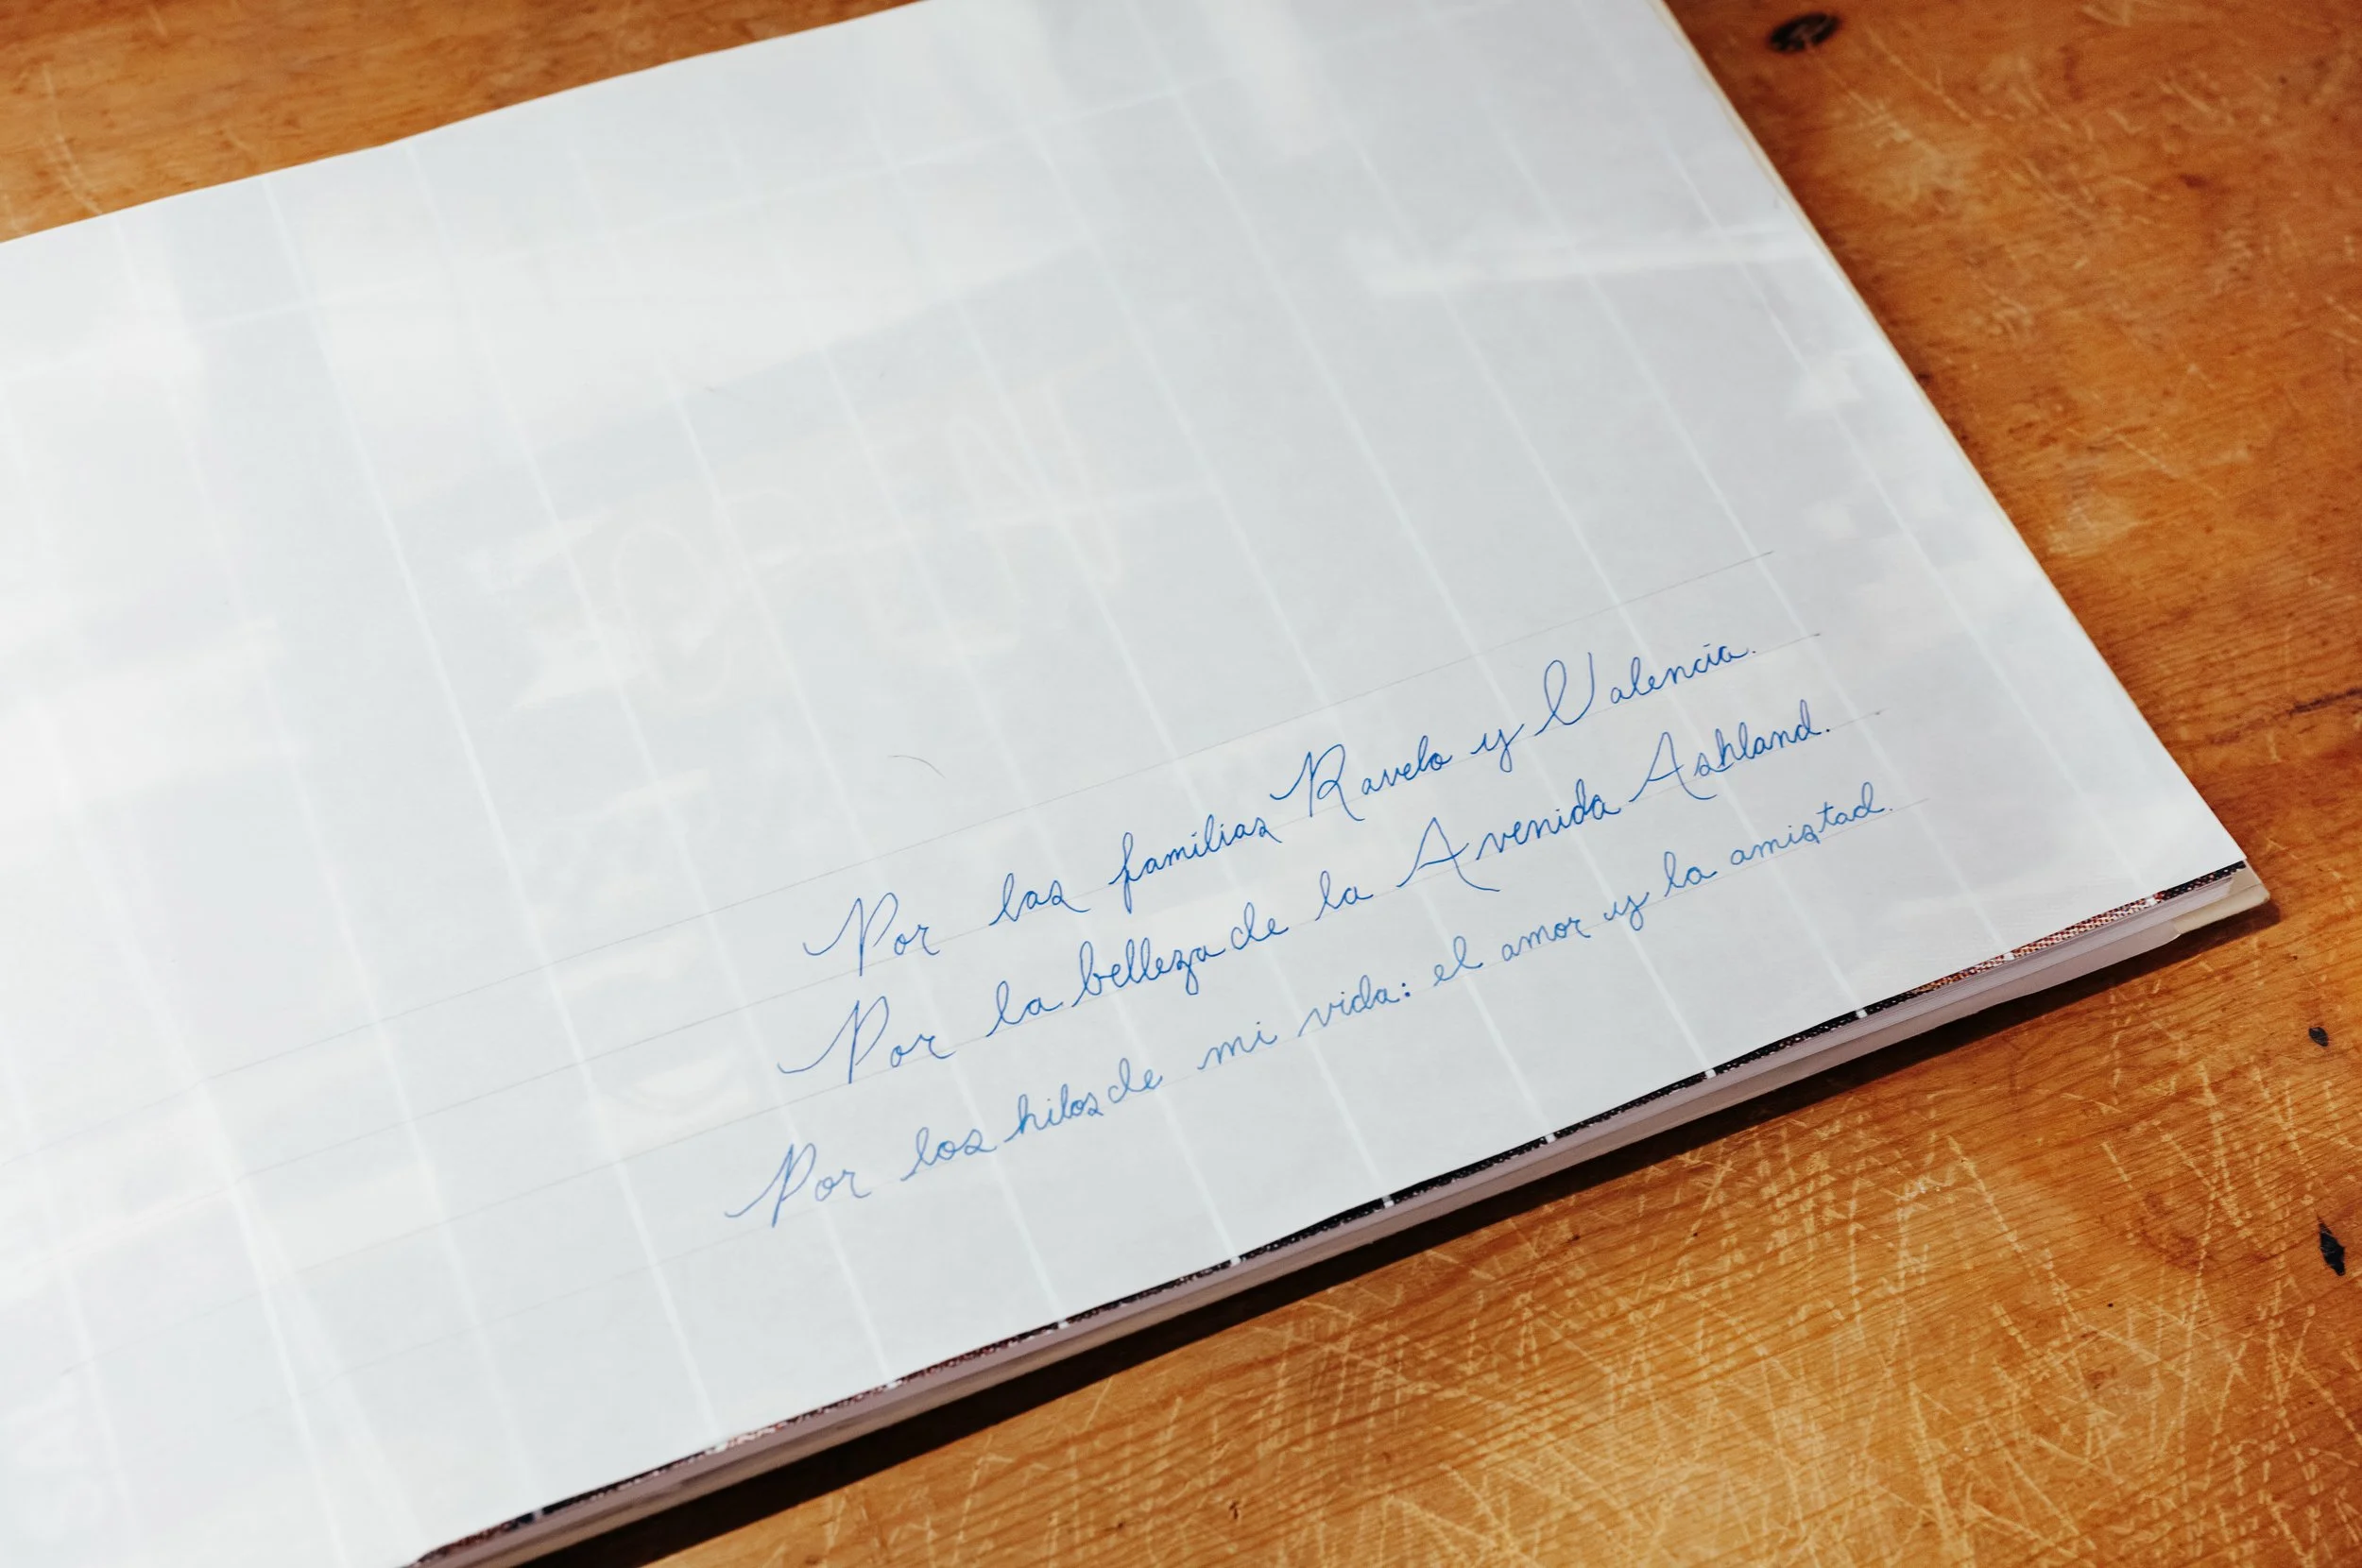 Por las familias Ravelo y Valencia.
Por la belleza de la Avenida Ashland.
Por los hilos de mi vida: el amor y la amistad.